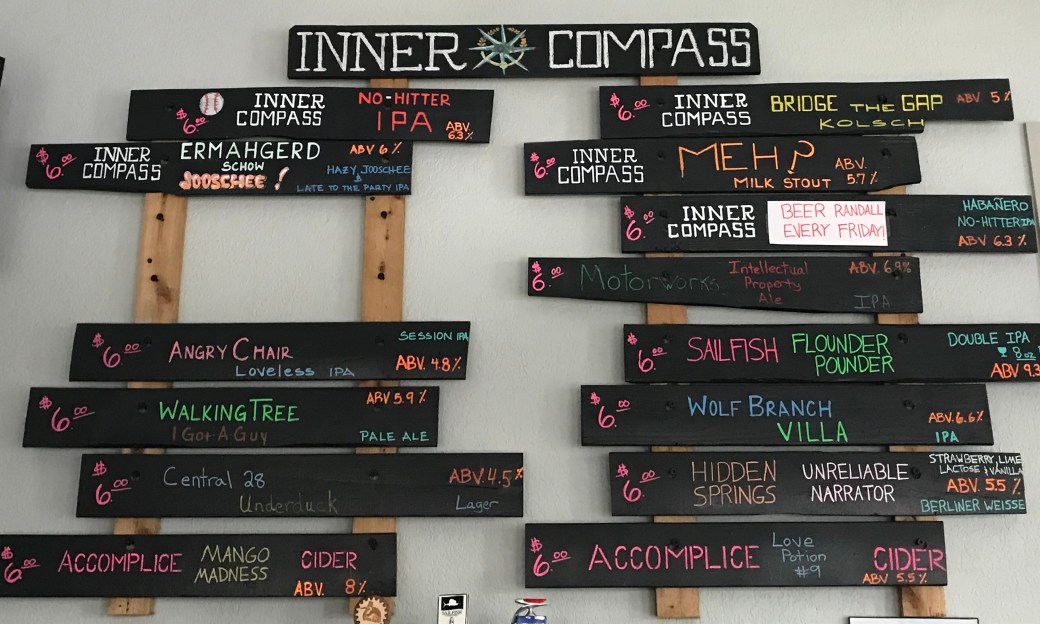 INNER COMPASS
$6.00 INNER COMPASS NO-HITTER IPA ABV 6.3%
$6.00 INNER COMPASS ERMAHGERD SCHOW JOOSCHEE! ABV 6% HAZY, JOOSCHEE & LATE TO THE PARTY IPA
$6.00 ANGRY CHAIR Loveless IPA SESSION IPA ABV. 4.8%
$6.00 WALKING TREE I Got A Guy ABV 5.9% PALE ALE
$6.00 Central 28 Underduck ABV. 4.5% Lager
$6.00 ACCOMPLICE MANGO MADNESS CIDER ABV. 8%
$6.00 INNER COMPASS BRIDGE THE GAP KOLSCH ABV 5%
$6.00 INNER COMPASS MEH? MILK STOUT ABV. 5.7%
$6.00 INNER COMPASS BEER RANDALL EVERY FRIDAY! HABAÑERO NO-HITTER IPA ABV 6.3%
$6.00 Motorworks Intellectual Property Ale ABV. 6.9% IPA
$6.00 SAILFISH FLOUNDER POUNDER DOUBLE IPA 8oz ABV 9.3
$6.00 WOLF BRANCH VILLA ABV. 6.6% IPA
$6.00 HIDDEN SPRINGS UNRELIABLE NARRATOR STRAWBERRY, LIME LACTOSE & VANILLA ABV. 5.5% BERLINER WEISSE
$6.00 ACCOMPLICE Love Potion #9 CIDER ABV 5.5%